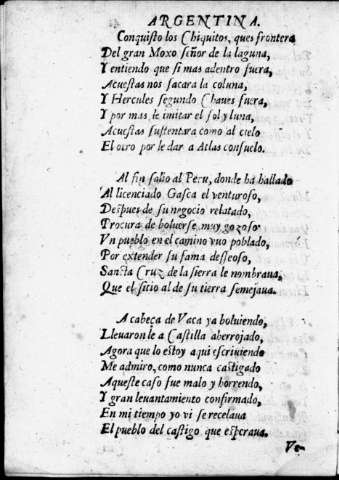 ARGENTINA.
Conquisto los Chiquitos, ques frontera
Del gran Moxo señor de la laguna,
Y entiendo que si mas adentro fuera,
Acuestas nos sacara la coluna,
Y Hercules segundo Chaues fuera,
Y por mas le imitar el sol y luna,
Acuestas sustentara como al cielo
El otro por le dar a Atlas consuelo.
Al fin salio al Peru, donde ha hallado
Al licenciado Gasca el venturoso,
Despues de su negocio relatado,
Procura de boluerse muy gozoso
Vn pueblo en el camino vuo poblado,
Por extender su fama desseoso,
Sancta Cruz de la sierra le nombraua,
Que el sitio al de su tierra semejaua.
A cabeça de Vaca ya boluiendo,
Lleuaronle a Castilla aherrojado,
Agora que lo estoy aqui escriuiendo
Me admiro, como nunca castigado
Aqueste caso fue malo y horrendo,
Y gran leuantamiento confirmado,
En mi tiempo yo vi se recelaua
El pueblo del castigo que esperaua.
Ve-